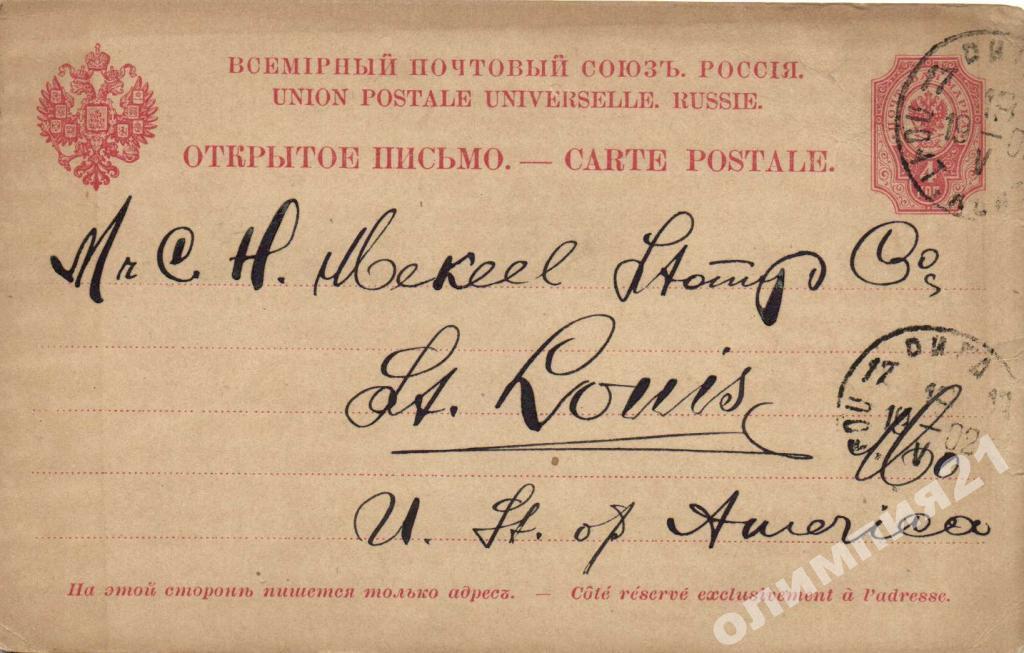 ВСЕМІРНЫЙ ПОЧТОВЫЙ СОЮЗЪ. РОССІЯ.
UNION POSTALE UNIVERSELLE. RUSSIE.
ОТКРЫТОЕ ПИСЬМО. — CARTE POSTALE.
Mr C. H. Mekeel Stamp Co
St. Louis
Mo
U. St. of America
17
19
V
17
02
V
На этой сторонѣ пишется только адресъ. — Côté réservé exclusivement à l'adresse.
олимпия21